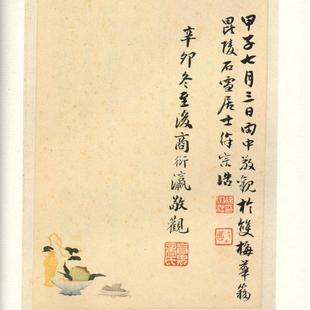 甲子七月三日雨中敬觀於雙梅華簃
毘陵石雪居士徐宗浩
辛卯冬至後商衍瀛敬觀